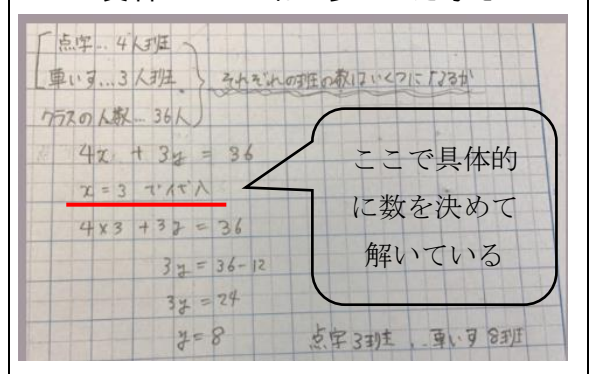 点字…4人班
車いす…3人班
それぞれの班の数はいくつになるか
クラスの人数…36人
4x + 3y = 36
x=3 で代入
4×3 + 3y = 36
3y = 36-12
3y = 24
y = 8
点字3班、車いす8班
ここで具体的
に数を決めて
解いている